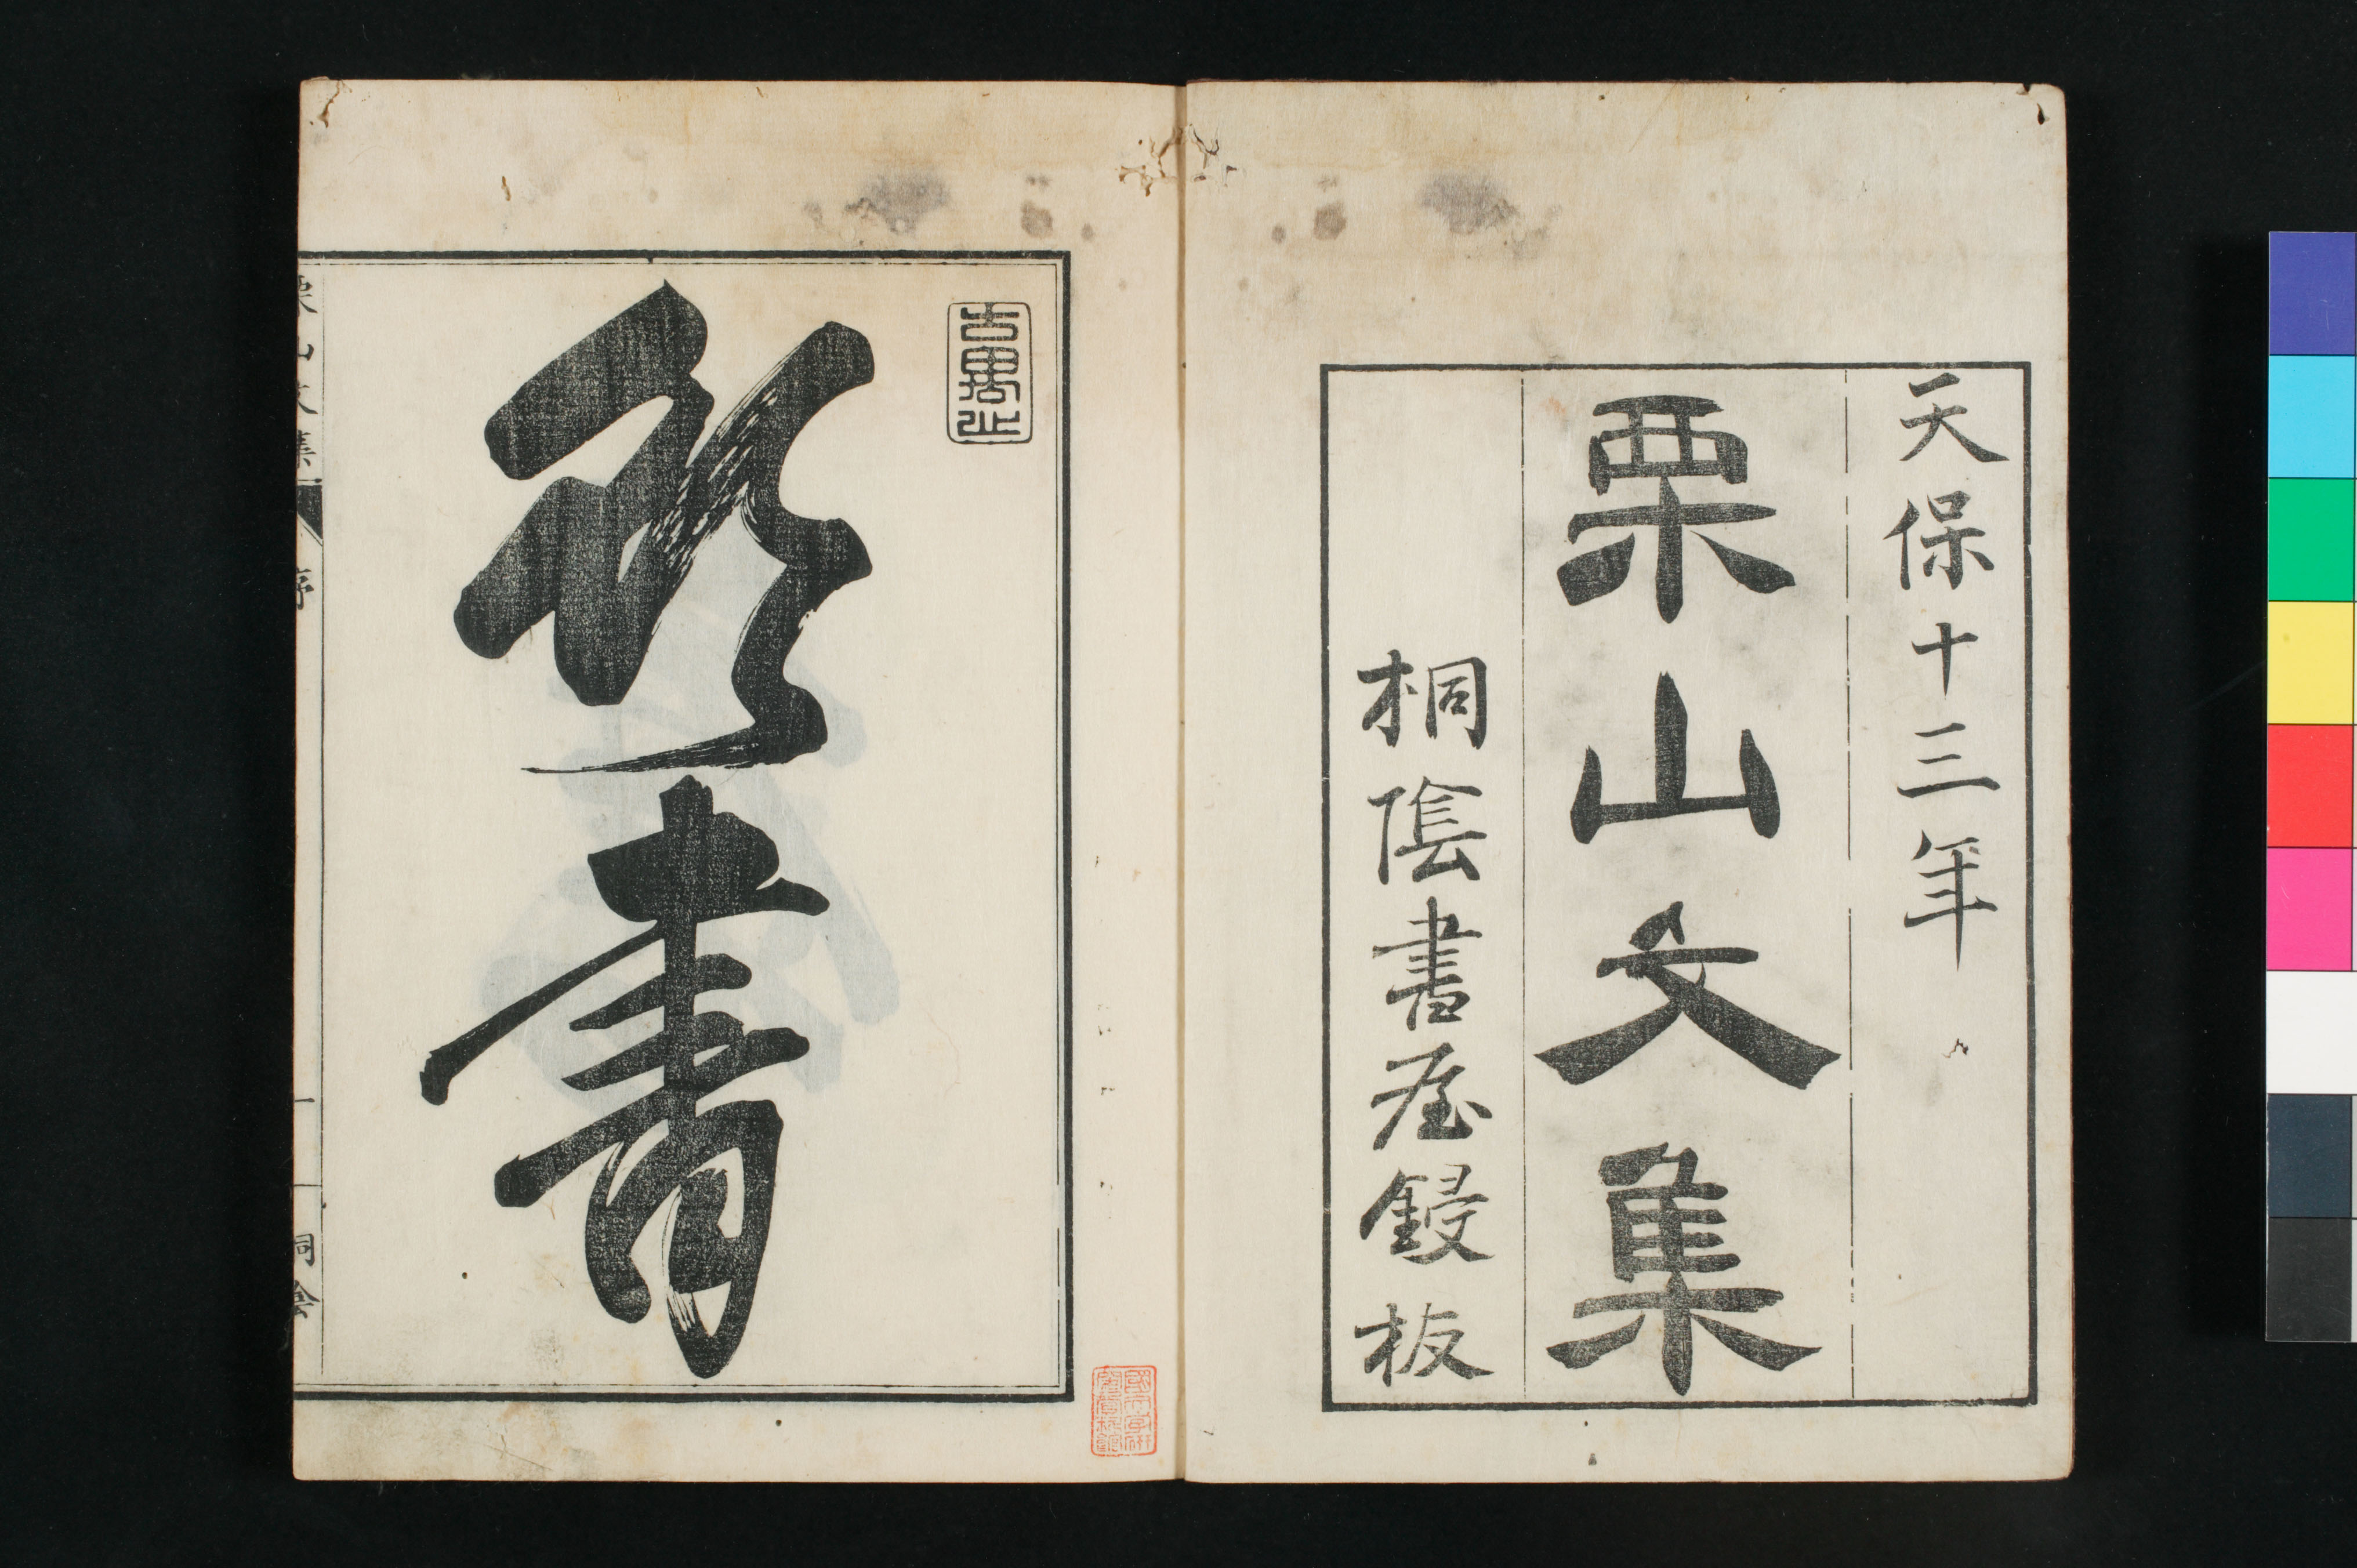 天保十三年
栗山文集
桐陰書屋鋟板
青
栗山文集
序
一
桐陰